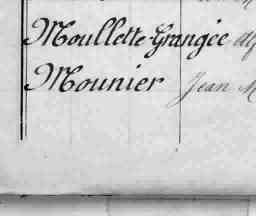 Moullette-Grangée
Mounier Jean M